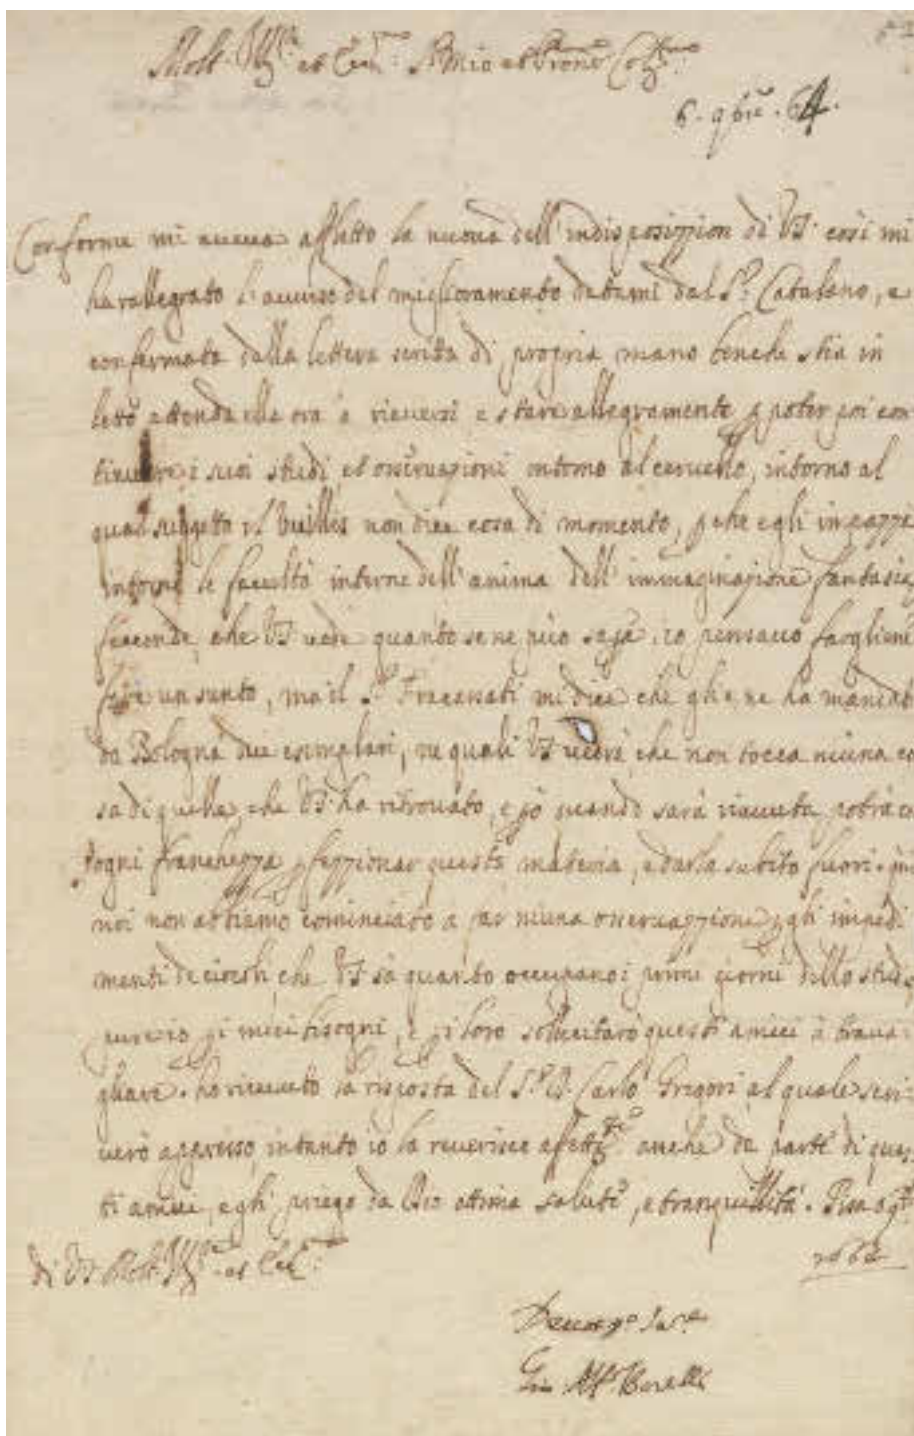 Molt. Ill.re et Ecc.mo S.r Mio et Prone Col.mo
6. 9bre. 64.
Conforme mi aveva afflitto la nuova dell'indisposizzion di VS. così mi
ha rallegrato l'avviso del miglioramento datami dal S.r Catalano, e
confermato dalla lettera scritta di propria mano benche stia in
letto attenda ella ora a riaversi e stare allegramente p poter poi con
tinuare i suoi studi, et osservazioni intorno al cervello, intorno al
qual suggetto il Vuillis non dice cosa di momento, pche egli ingazze
intorno le facoltà interne dell'anima dell'immaginazione fantasia
che VS vede quanto se ne può sape: io pensavo fargliene
fare un sunto, ma il S.r Fracassati mi dice che glie ne ha mandat
da Bologna due esemplari, ne quali VS vedrà, che non tocca niuna co
sa di quelle, che VS. ha ritrovato, e pò quando sarà riavuta potrà co
d'ogni franchezza pfezzionar questa materia, e darla subito fuori. qui
noi non abbiamo cominciato a far niuna osservazzione p gli impedi
menti de circoli, che VS sà quanto occupano i primi giorni dello studi
pure io p i miei bisogni, e p i loro solleciterò questi amici à trava
gliare. ho ricevuto la risposta del S.r D. Carlo Grigori al quale scri
verò appresso, intanto io la reverisco affett.te anche da parte di ques
ti amici, e gli priego da Dio ottima salute, e tranquillità. Pisa 6 9bre
1664
di VS. Molt. Ill.re et Ecc.ma
Devot.o Ser.e
Gio: Alf.o Borelli